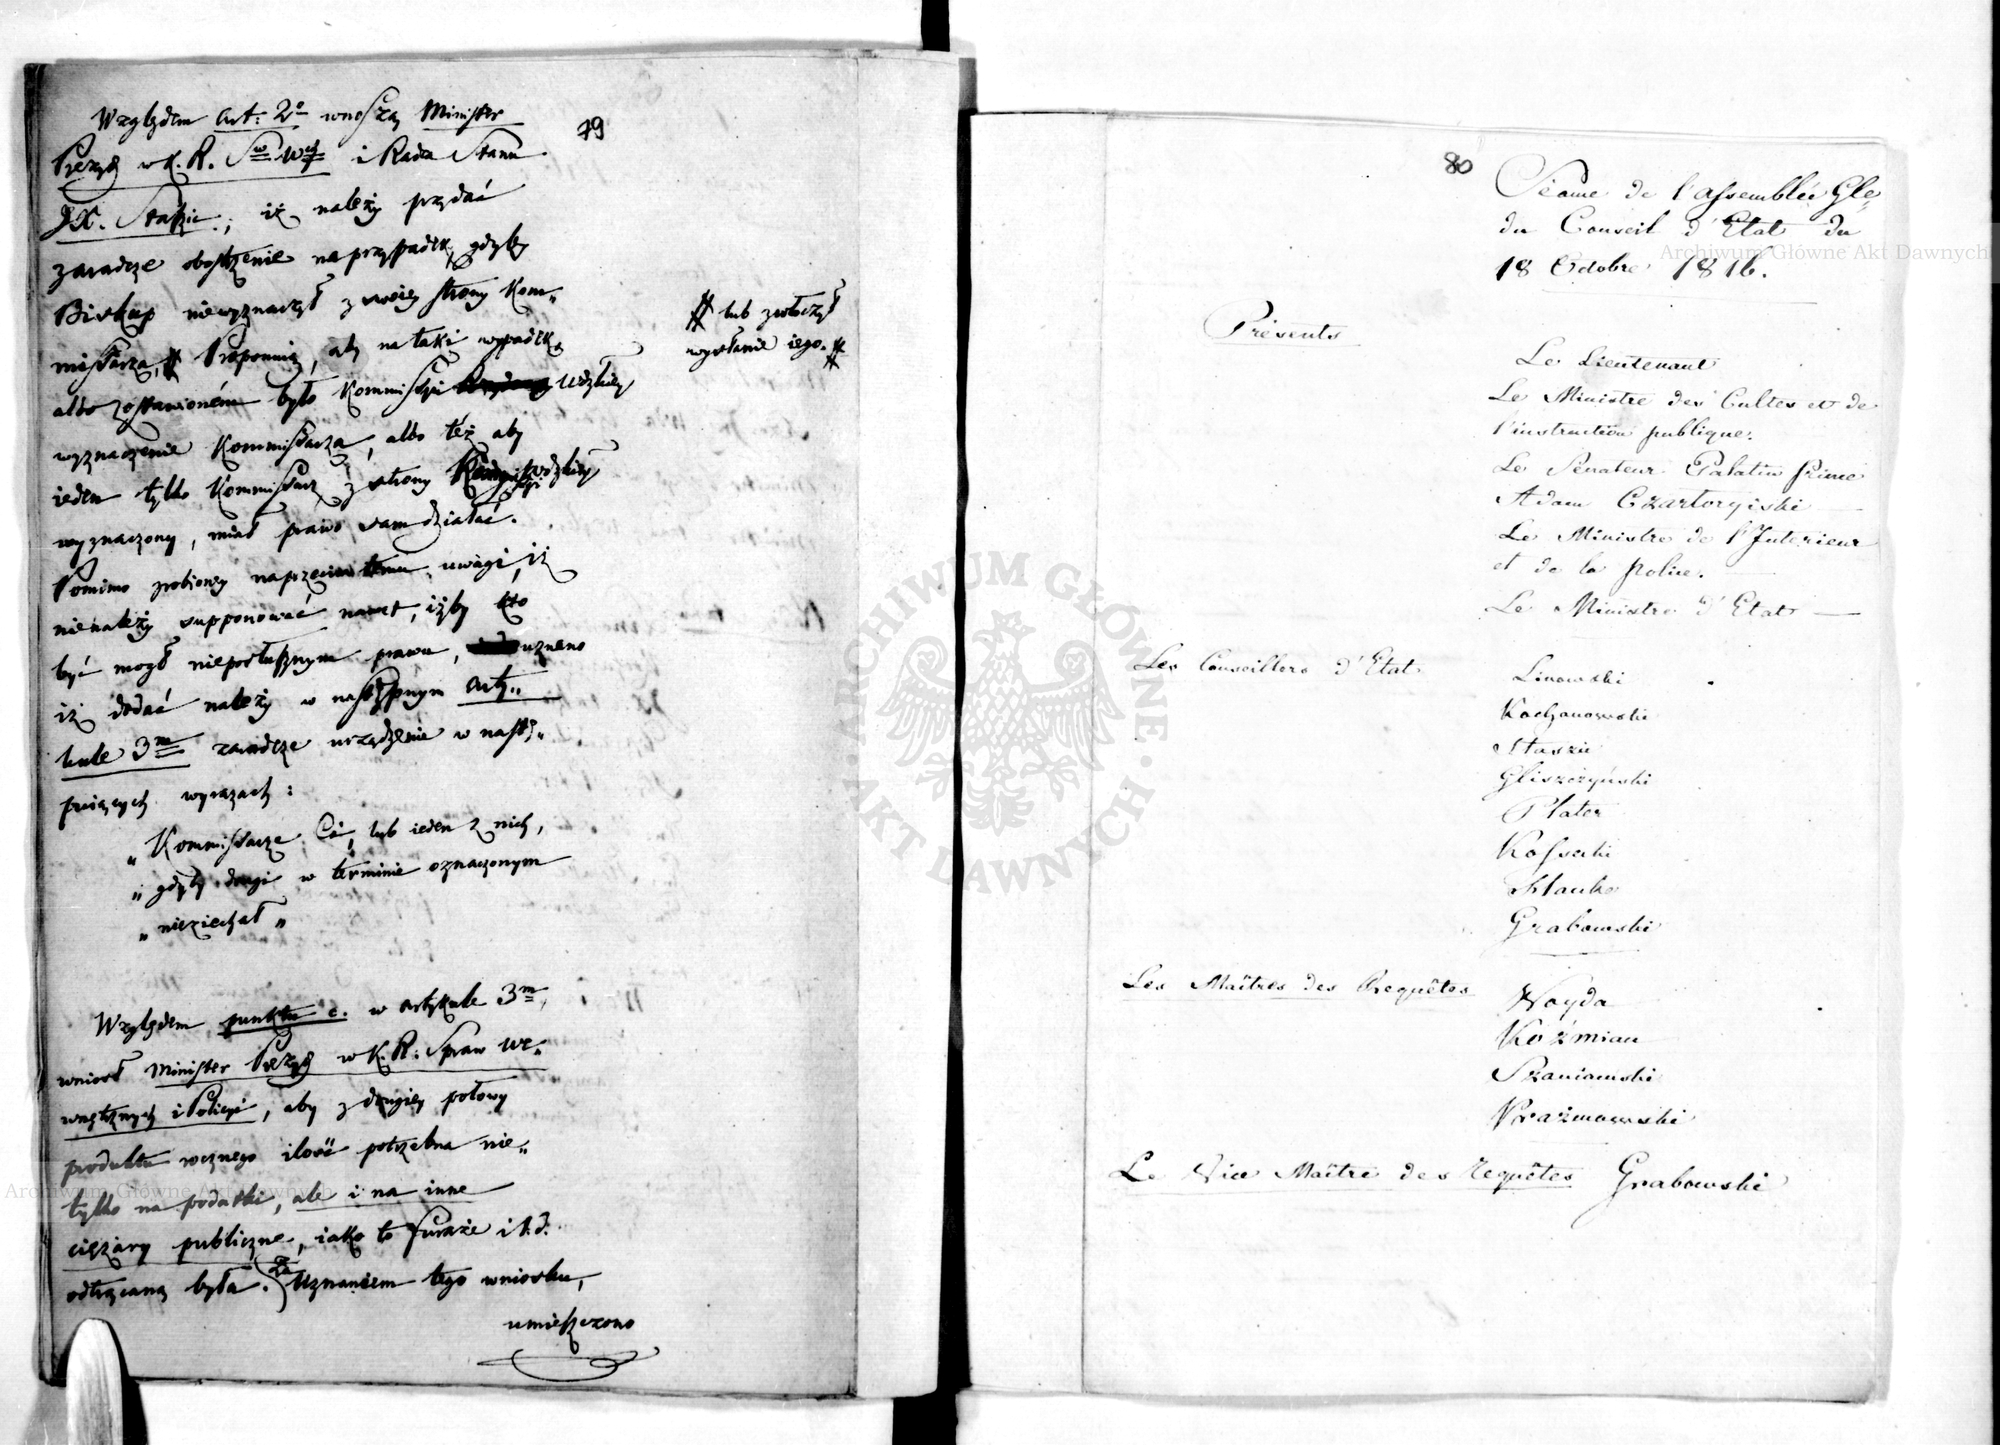 79
Względem art: 2º wnoszą Minister
Prezyd. w K. R. S^w W^ch i Radca Stanu
JX. Staszic, iż należy przydać
zaradcze obostrzenie na przypadek, gdyby
Biskup niewyznaczył z swoiey strony Kom„
missarza, # Proponuią, aby na taki wypadek,
# lub zwłóczył
wysłanie iego. #
albo zostawioném było Kommissyi Wdzkiey
wyznaczenie Kommissarza, albo też aby
ieden tylko Kommissarz z strony Kommissyi Wdzkiey
wyznaczony, miał prawo sam działać.
Pomimo zrobioney naprzeciw temu uwagi, iż
nienależy supponować nawet, iżby kto
być mogł nieposłusznym prawu, uznano
iż dodać należy w następnym arty„
kule 3^m zaradcze urządzenie w nastę„
puiących wyrazach:
„ Kommissarze Ci, lub ieden z nich,
„ gdyby drugi w terminie oznaczonym
„ nieziechał „
Względem punktu c. w artykule 3^m,
wniosł Minister Prezyd w K. R: Spraw We„
wnętrznych i Policyi, aby z drugiey połowy
produktu rocznego ilość potrzebna nie„
tylko na podatki, ale i na inne
ciężary publiczne, iako to furaże i t. d.
odtrącaną była. Za Uznaniem tego wniosku,
umieszczono
80
Séance de l'assemblée Gle
du Conseil d'Etat du
18 Octobre 1816.
Présents
Le Lieutenant
Le Ministre des Cultes et de
l'instruction publique.
Le Sénateur Palatin Prince
Adam Czartoryiski
Le Ministre de l'Interieur
et de la police.
Le Ministre d'Etat
Les Conseillers d'Etat
Linowski
Kochanowski
Staszic
Gliszczyński
Plater
Kossecki
Stanko
Grabowski
Les Maîtres des Requêtes
Woyda
Koźmian
Szaniawski
Prażmowski
Le Vice Maître des requêtes Grabowski
Archiwum Główne Akt Dawnych
Archiwum Główne Akt Dawnych
ARCHIWUM GŁÓWNE AKT DAWNYCH